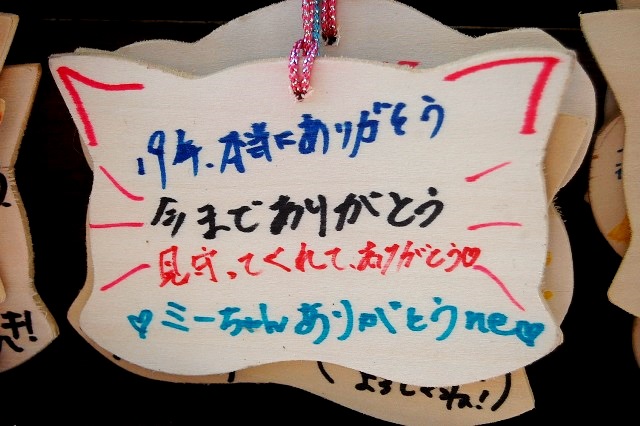 19年、本当にありがとう
今までありがとう
見守ってくれて、ありがとう♡
♡ミーちゃんありがとうne♡
き!
よろしくね!)